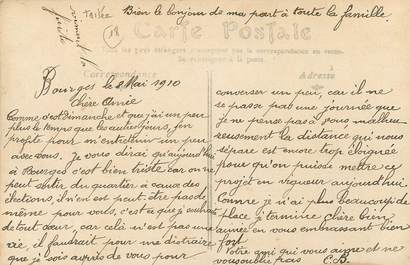 Bien le bonjour de ma part à toute la famille.
18
Carte Postale
Tous les pays étrangers n'acceptent pas la correspondance au recto.
Se renseigner à la poste.
Correspondance
Adresse
Bourges le 8 Mai 1910
Chère Amie
Comme c'est dimanche et que j'ai un peu
plus le temps que les autres jours, j'en
profite pour m'entretenir un peu
avec vous. Je vous dirai qu'aujourd'hui
à Bourges c'est bien triste car on ne
peut sortir du quartier à cause des
élections, il n'en est peut être pas de
même pour vous, c'est ce que je souhaite
de tout cœur, car celà n'est pas une
vie, il faudrait pour me distraire
que je sois auprès de vous pour
converser un peu, car il ne
se passe pas une journée que
je ne pense pas à vous malheu
reusement la distance qui nous
sépare est encore trop éloignée
pour qu'on puisse mettre ce
projet en vigueur aujourd'hui
Comme je n'ai plus beaucoup de
place je termine chère bien
aimée en vous embrassant bien
fort
Votre ami qui vous aime et ne
vous oublie pas C.B.